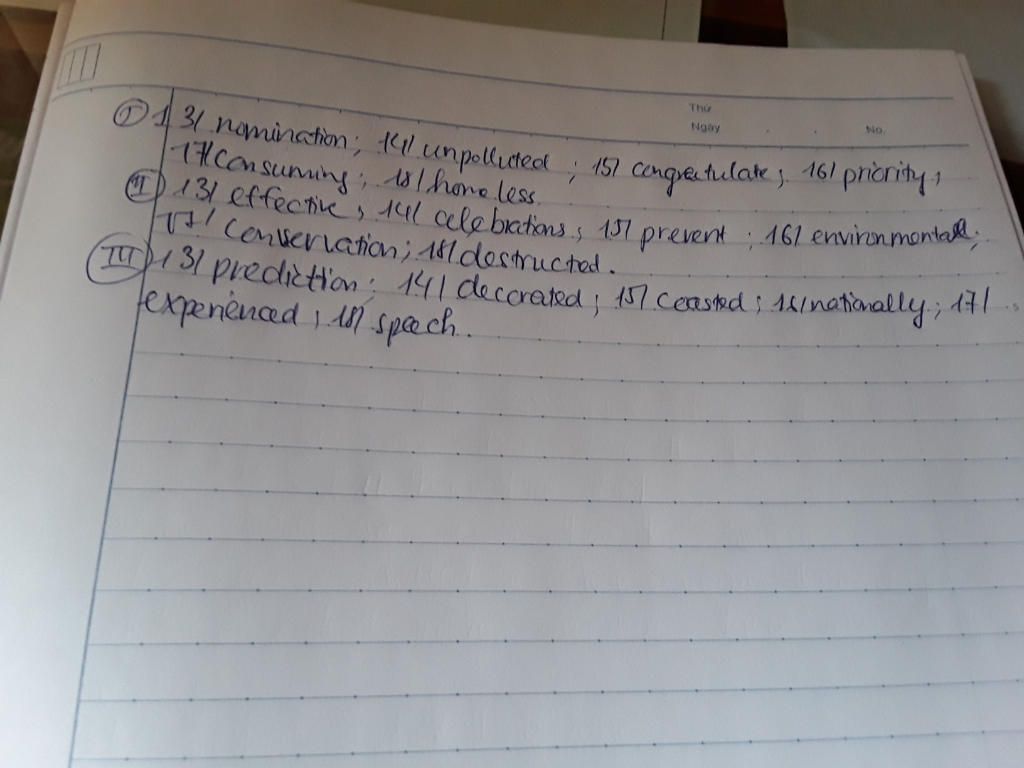 Thứ
Ngày . . No.
I 13/ nomination; 14/ unpolluted; 15/ congratulate; 16/ priority;
17/ consuming; 18/ homeless.
II 13/ effective; 14/ celebrations; 15/ prevent; 16/ environmental;
17/ conservation; 18/ destructed.
III 13/ prediction; 14/ decorated; 15/ coasted; 16/ nationally; 17/
experienced; 18/ speech.